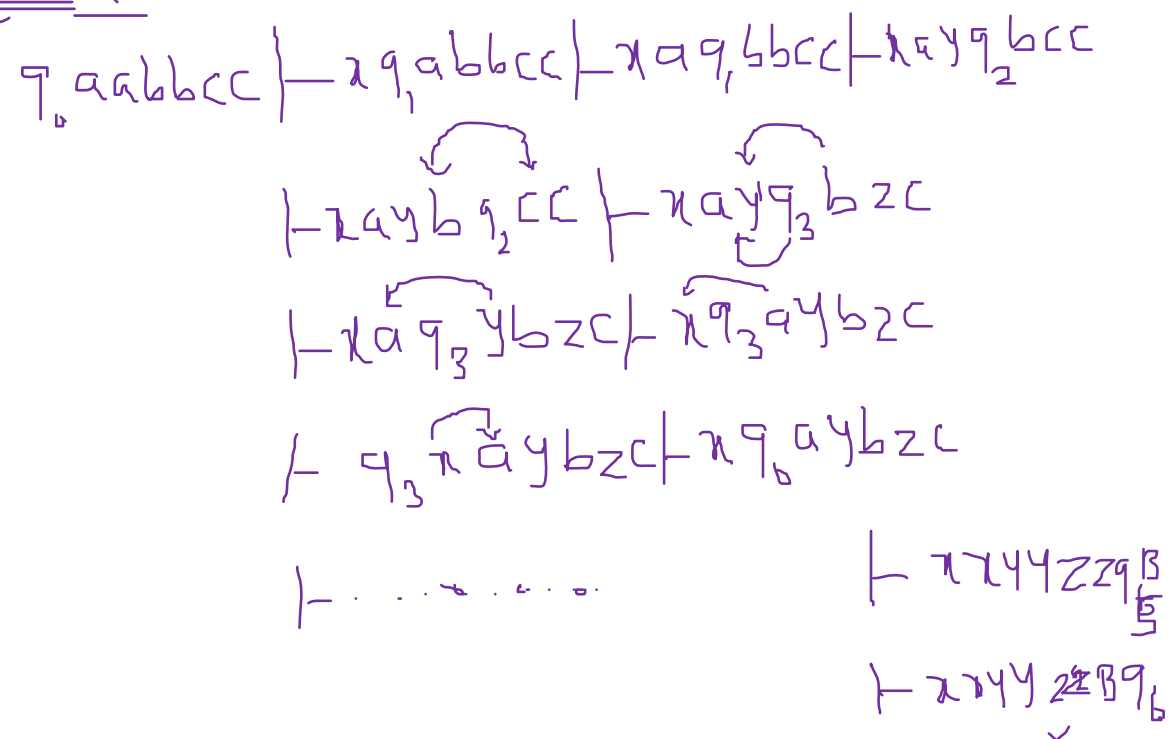 q₀aabbcc ⊢ xq₁abbcc ⊢ xaq₁bbcc ⊢ xayq₂bcc
⊢ xaybq₂cc ⊢ xayq₃bzc
⊢ xaq₃ybzc ⊢ xq₃aybzc
⊢ q₃xaybzc ⊢ xq₀aybzc
⊢ . . . . . . . . .
⊢ xxyyzzq₅B
⊢ xxyyzzBq₆